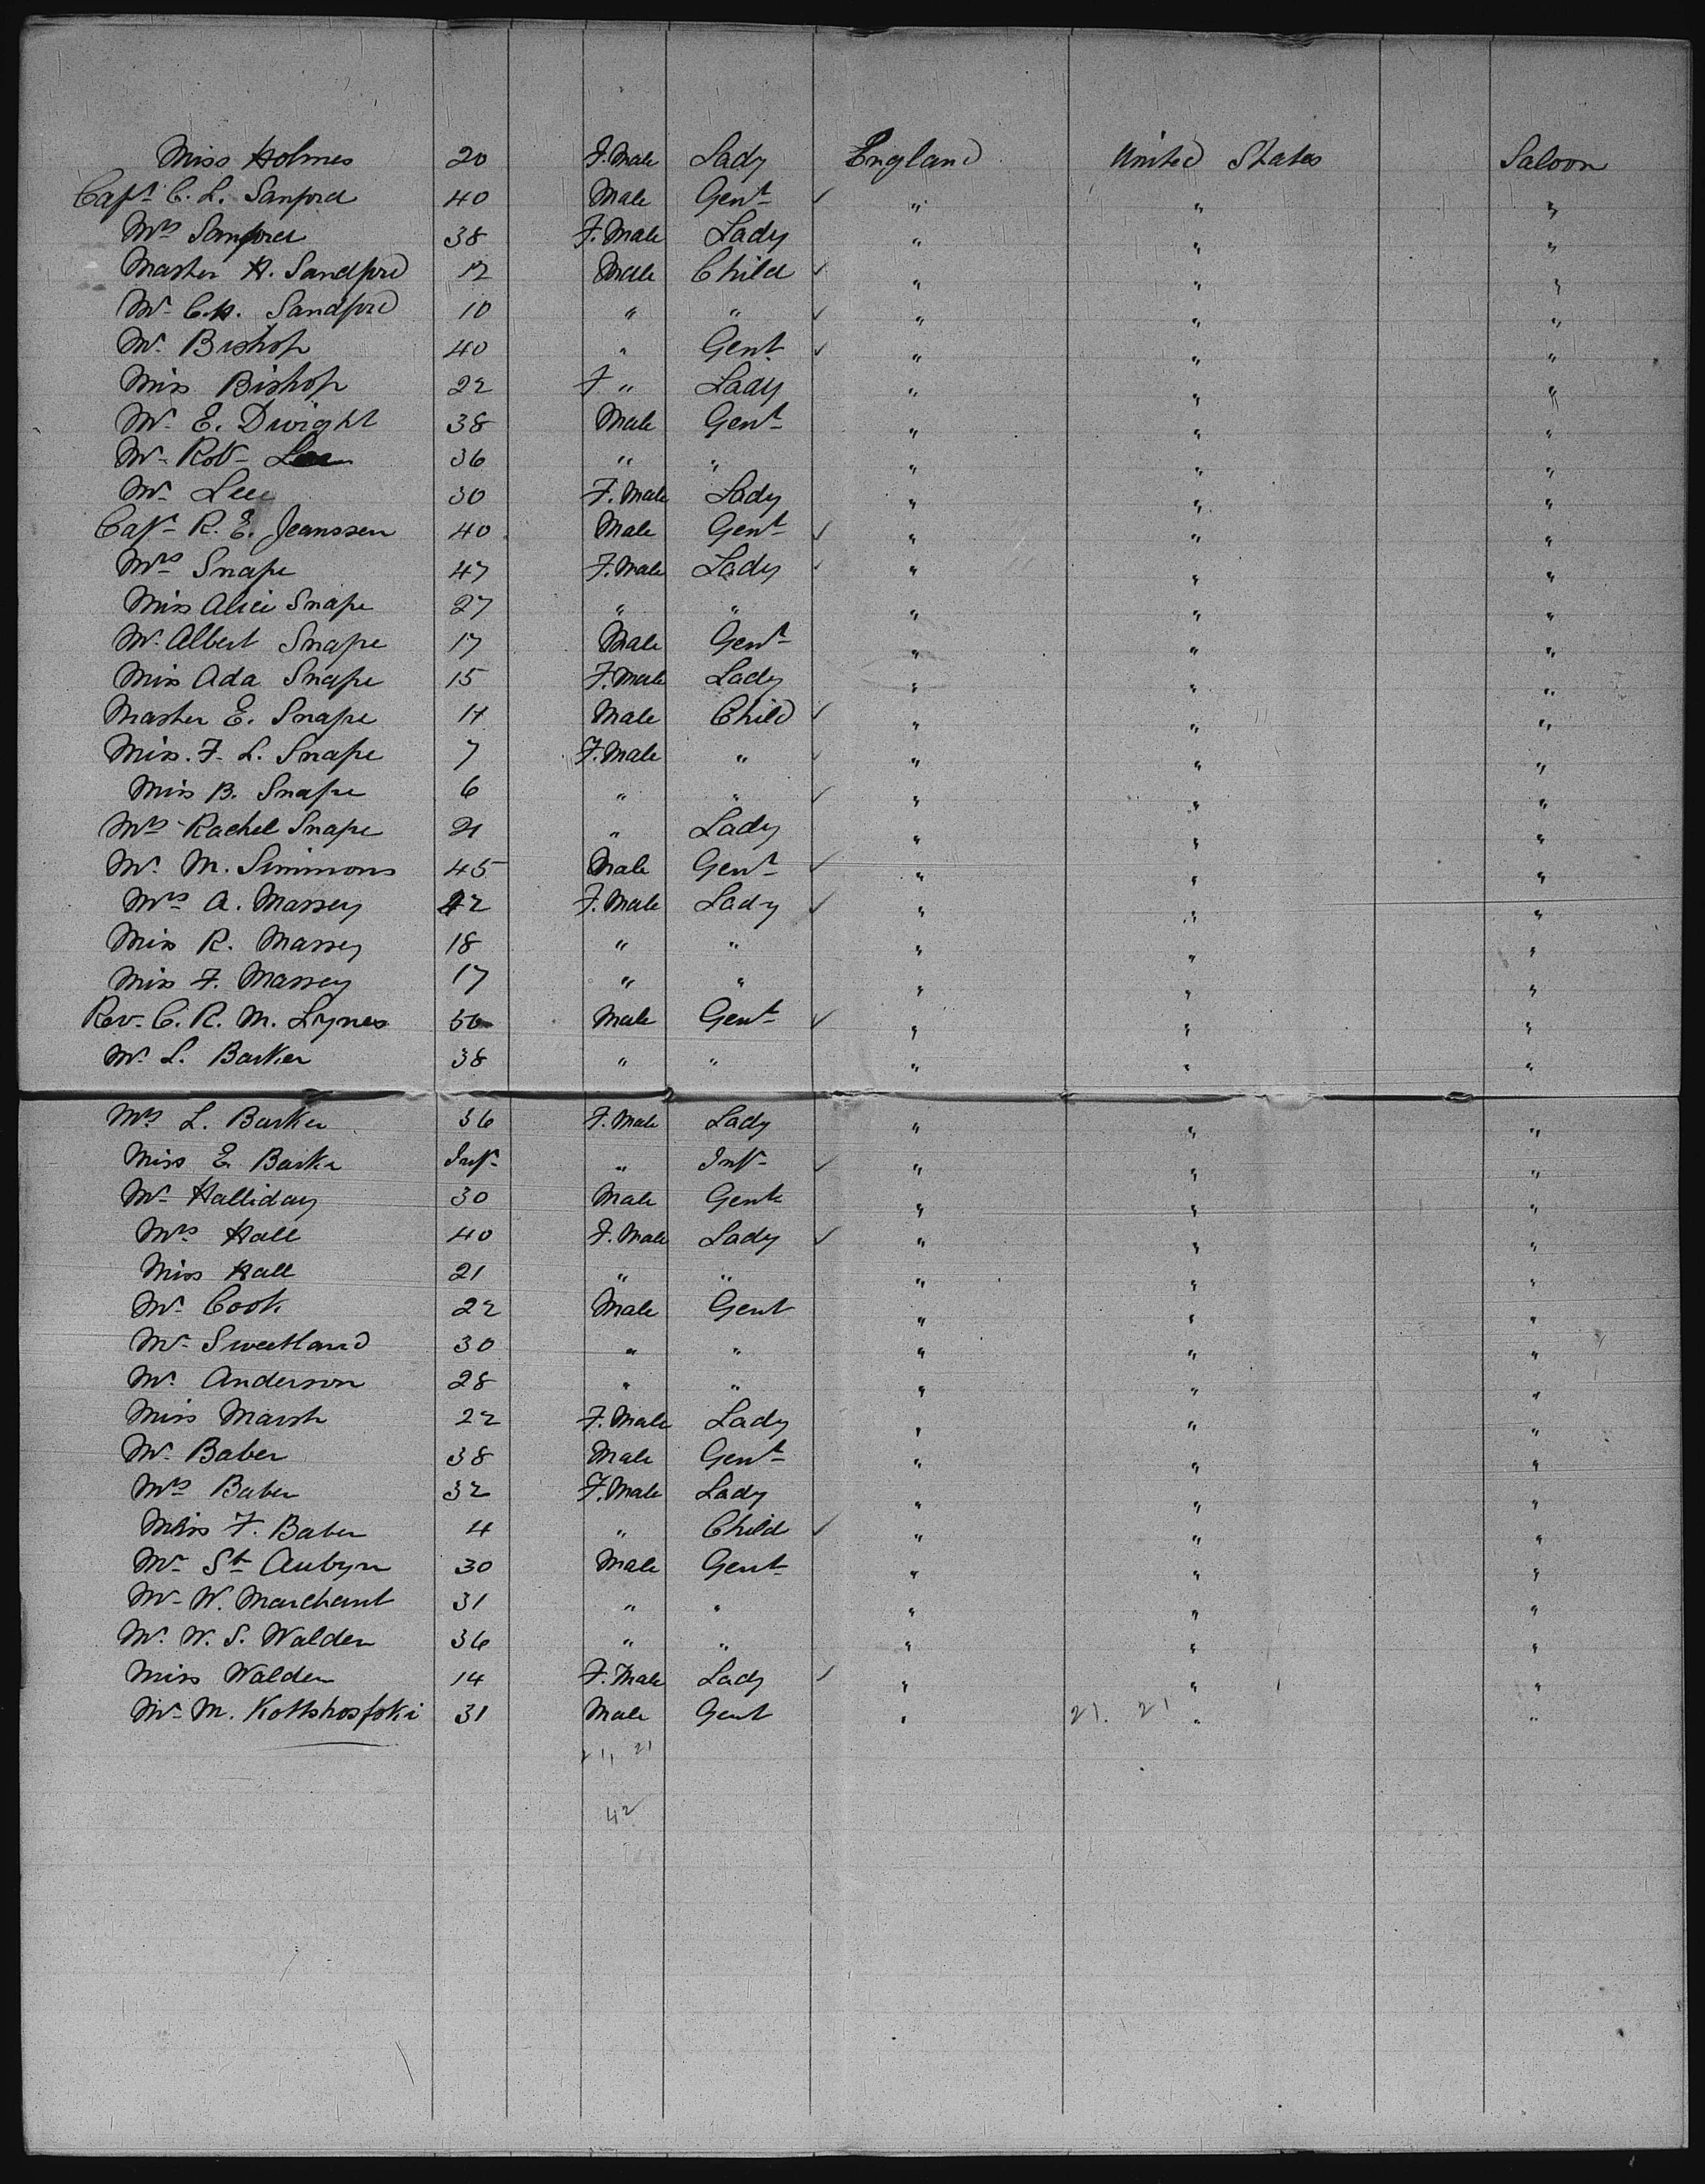 Miss Holmes 20 F. Male Lady England United States Saloon
Capt C. L. Sanford 40 Male Gent ✓ " " "
Mrs Sanford 38 F. Male Lady " " "
Master H. Sandford 12 Male Child ✓ " " "
Mr C.H. Sandford 10 " " ✓ " " "
Mr Bishop 40 " Gent ✓ " " "
Miss Bishop 22 F " Lady " " "
Mr E. Dwight 38 Male Gent " " "
Mr Robt Lee 36 " " " " "
Mr Lee 30 F. Male Lady " " "
Capt R. E. Jeanssen 40 Male Gent ✓ " " "
Mrs Snape 47 F. Male Lady ✓ " " "
Miss Alice Snape 27 " " " " "
Mr Albert Snape 17 Male Gent " " "
Miss Ada Snape 15 F. Male Lady " " "
Master E. Snape 11 Male Child ✓ " " "
Miss. F. L. Snape 7 F. Male " ✓ " " "
Miss B. Snape 6 " " ✓ " " "
Mrs Rachel Snape 21 " Lady " " "
Mr M. Simmons 45 Male Gent ✓ " " "
Mrs A. Massey 42 F. Male Lady ✓ " " "
Miss R. Massey 18 " " " " "
Miss F. Massey 17 " " " " "
Rev. C. R. M. Lynes Male Gent ✓ " " "
Mr L. Barker 38 " " " " "
Mrs L. Barker 36 F. Male Lady " " "
Miss E. Barker Inft " Inft ✓ " " "
Mr Halliday 30 Male Gent " " "
Mrs Hall 40 F. Male Lady ✓ " " "
Miss Hall 21 " " " " "
Mr Cook 22 Male Gent " " "
Mr Sweetland 30 " " " " "
Mr Anderson 28 " " " " "
Miss Marsh 22 F. Male Lady " " "
Mr Baber 38 Male Gent " " "
Mrs Baber 32 F. Male Lady " " "
Miss F. Baber 4 " Child ✓ " " "
Mr St Aubyn 30 Male Gent " " "
Mr W. Marchant 31 " " " " "
Mr W. S. Walden 36 " " " " "
Miss Walden 14 F. Male Lady ✓ " " "
Mr M. 31 Male Gent " 21. 21 " "
21, 21
42